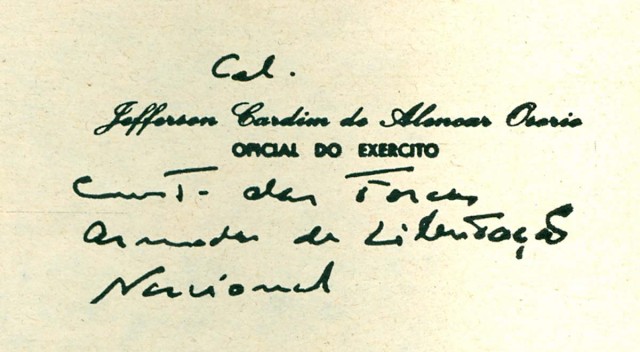 Cel.
Jefferson Cardim de Alencar Osorio
OFICIAL DO EXERCITO
das Forcas
Armadas de Libertação
Nacional